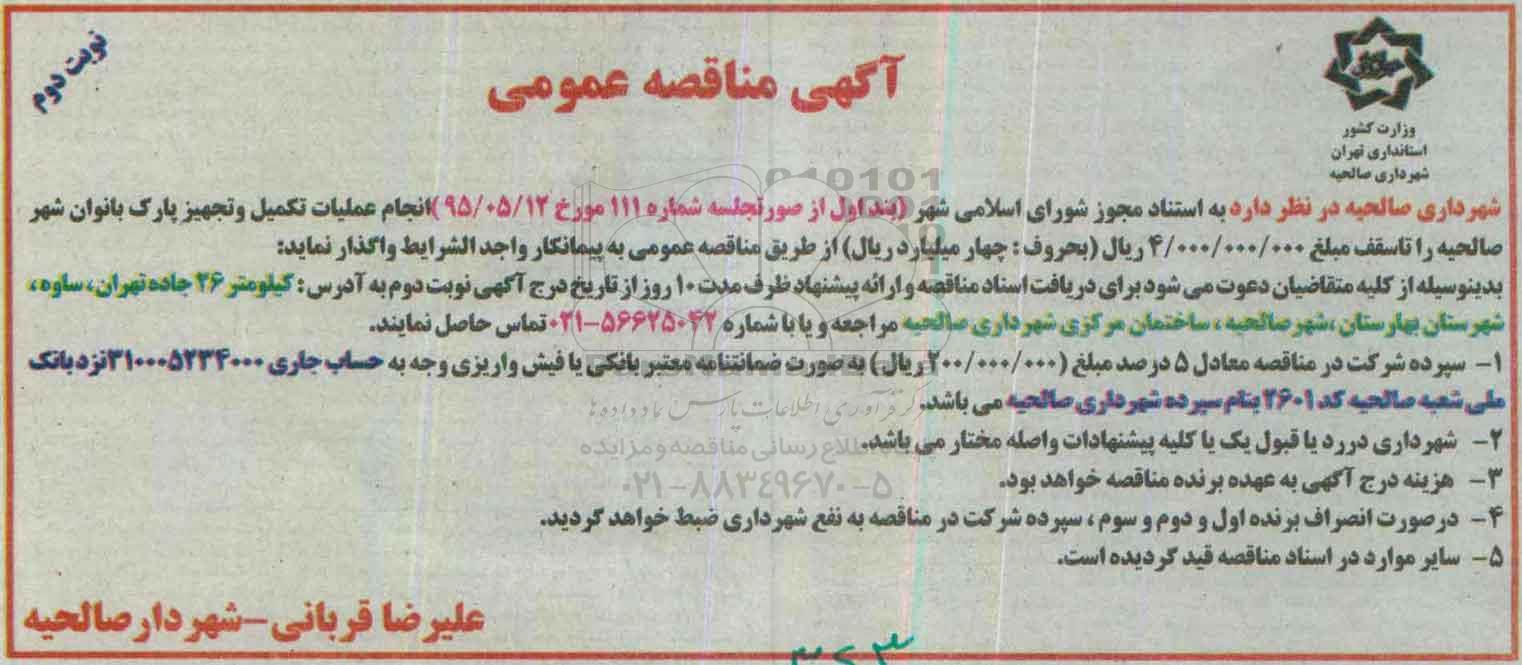 نوبت دوم
آگهی مناقصه عمومی
وزارت کشور
استانداری تهران
شهرداری صالحیه
شهرداری صالحیه در نظر دارد به استناد مجوز شورای اسلامی شهر (بند اول از صورتجلسه شماره ۱۱۱ مورخ ۹۵/۰۵/۱۲) انجام عملیات تکمیل وتجهیز پارک بانوان شهر
صالحیه را تاسقف مبلغ ۴/۰۰۰/۰۰۰/۰۰۰ ریال (بحروف : چهار میلیارد ریال) از طریق مناقصه عمومی به پیمانکار واجد الشرایط واگذار نماید:
بدینوسیله از کلیه متقاضیان دعوت می شود برای دریافت اسناد مناقصه و ارائه پیشنهاد ظرف مدت ۱۰ روز از تاریخ درج آگهی نوبت دوم به آدرس : کیلومتر ۲۶ جاده تهران، ساوه ،
شهرستان بهارستان ،شهرصالحیه ، ساختمان مرکزی شهرداری صالحیه مراجعه و یا با شماره ۵۶۶۲۵۰۴۲-۰۲۱ تماس حاصل نمایند.
۱- سپرده شرکت در مناقصه معادل ۵ درصد مبلغ (۲۰۰/۰۰۰/۰۰۰ ریال) به صورت ضمانتنامه معتبر بانکی یا فیش واریزی وجه به حساب جاری ۳۱۰۰۰۵۲۳۴۰۰۰ نزد بانک
ملی شعبه صالحیه کد ۲۶۰۱ بنام سپرده شهرداری صالحیه می باشد.
گردآوری اطلاعات پارس نماد داده ها
۲- شهرداری دررد یا قبول یک یا کلیه پیشنهادات واصله مختار می باشد.
اطلاع رسانی مناقصه و مزایده
۳- هزینه درج آگهی به عهده برنده مناقصه خواهد بود.
۰۲۱-۸۸۳۴۹۶۷۰-۵
۴- درصورت انصراف برنده اول و دوم و سوم ، سپرده شرکت در مناقصه به نفع شهرداری ضبط خواهد گردید.
۵- سایر موارد در اسناد مناقصه قید گردیده است.
علیرضا قربانی-شهردار صالحیه